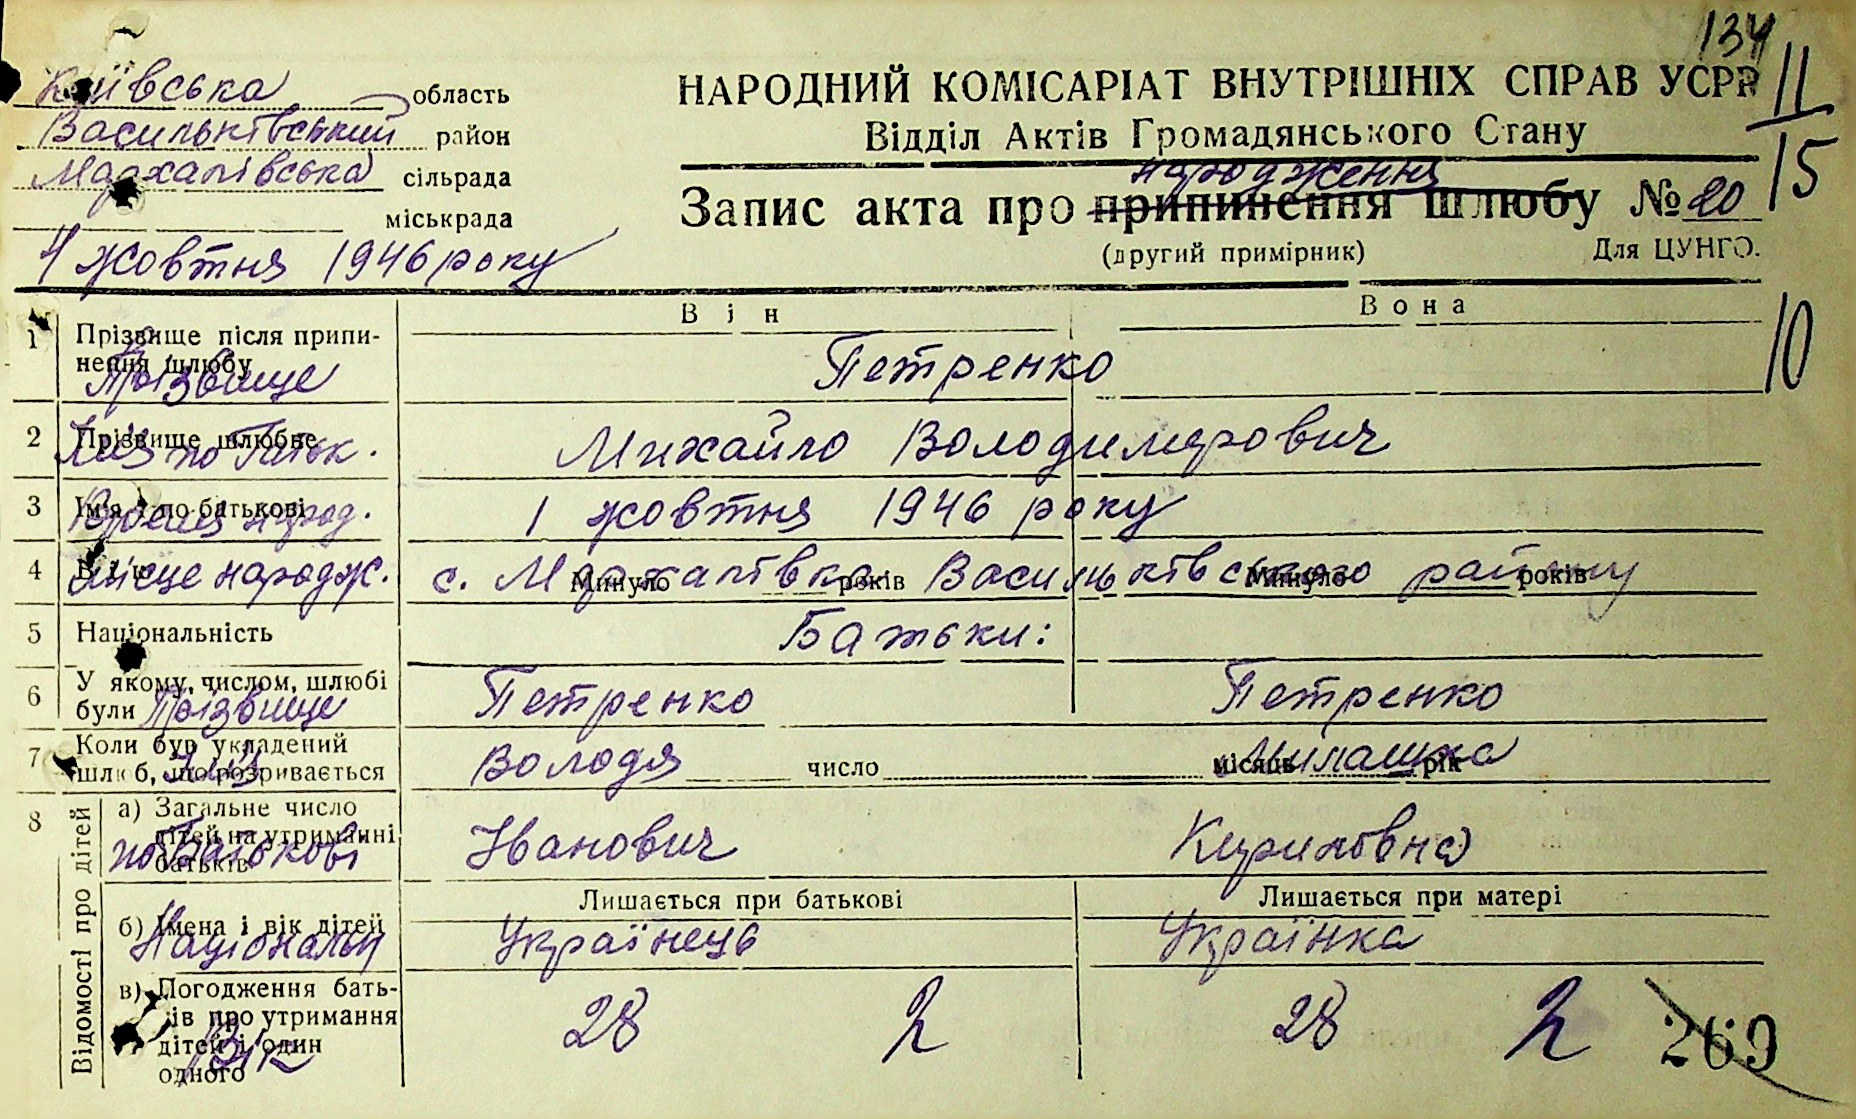 134
Київська область
НАРОДНИЙ КОМІСАРІАТ ВНУТРІШНІХ СПРАВ УСРР
11
Васильківський район
Відділ Актів Громадянського Стану
15
Мархалівська сільрада
народження
міськрада
Запис акта про припинення шлюбу № 20
4 жовтня 1946 року
(другий примірник) Для ЦУНГО.
Він Вона
10
1 Прізвище після припинення шлюбу
Прізвище Петренко
2 Прізвище шлюбне
Ім'я по Батьк. Михайло Володимирович
3 Ім'я і по батькові
Время народ. 1 жовтня 1946 року
4 Місце народж. с. Мархалівка Васильківського району
Минуло років Минуло років
5 Національність Батьки:
6 У якому, числом, шлюбі були
Прізвище Петренко Петренко
7 Коли був укладений шлюб, що розривається
Володя число місяць рік
8 Відомості про дітей
а) Загальне число дітей на утриманні батьків
по Батькові Іванович Кирилівна
Лишається при батькові Лишається при матері
б) Імена і вік дітей
Національн Українець Українка
в) Погодження батьків про утримання дітей і один одного
Вік 28 2 28 2
269